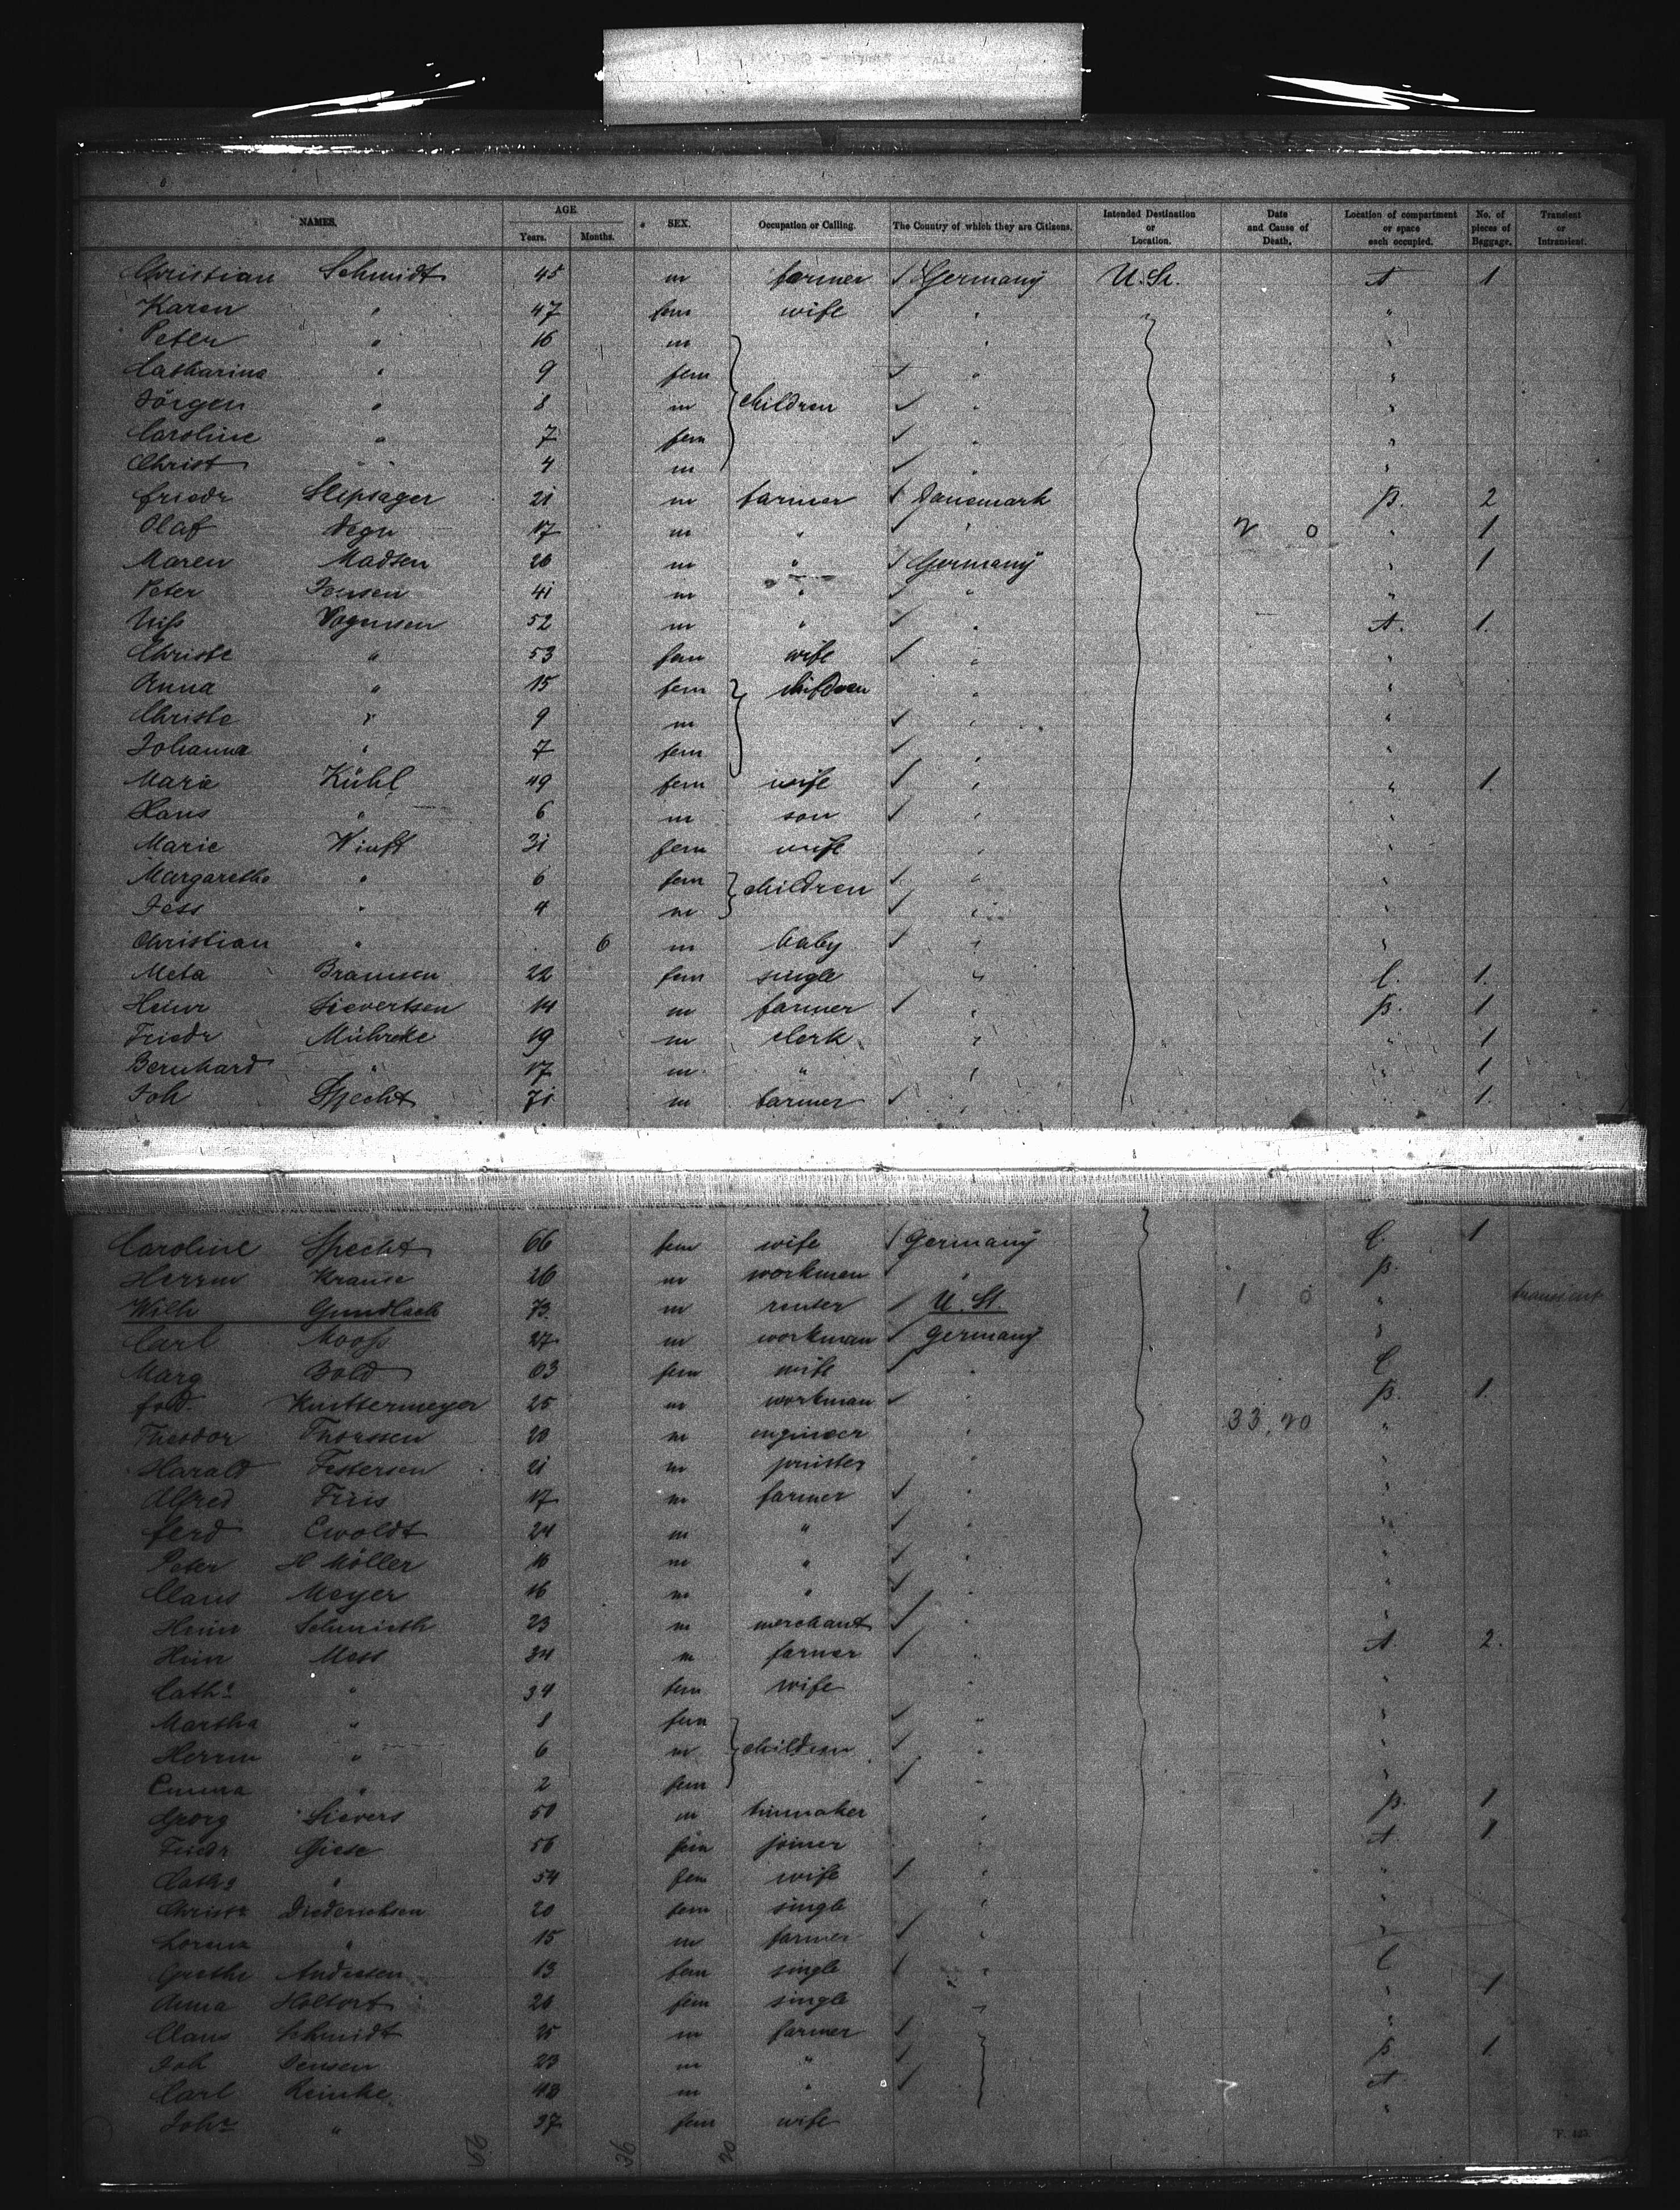 NAMES. AGE Years. Months. SEX. Occupation or Calling. The Country of which they are Citizens. Intended Destination or Location. Date and Cause of Death. Location of compartment or space each occupied. No. of pieces of Baggage. Transient or Intransient.
Christian Schmidt 45 m farmer Germany U.St. A 1
Karen " 47 fem wife " " "
Peter " 16 m " "
Catharina " 9 fem " "
Jörgen " 8 m children " "
Caroline " 7 fem " "
Christ " 4 m " "
Friedr Slipsager 21 m farmer Danemark B. 2
Olaf Degn 17 m " " " 1
Maren Madsen 26 m " Germany " 1
Peter Jensen 41 m " " "
Niss 52 m " " A. 1.
Christe " 53 fem wife " "
Anna " 15 fem children " "
Christe " 9 m " "
Johanna " 7 fem " "
Marie Kühl 49 fem wife " " 1.
Hans " 6 m son " "
Marie 31 fem wife " "
Margaretha " 6 fem children " "
Jess " 4 m " "
Christian " 6 m baby " "
Meta Bramsen 22 fem single " C. 1.
Heinr Sievertsen 14 m farmer " B. 1
Friedr 19 m clerk " " 1
Bernhard " 17 m " " 1
Joh Specht 71 m farmer " 1.
Caroline Specht 66 fem wife Germany C. 1
Herrm Krause 26 m workman " B.
Wilh Gundlach 73 m U. St. 1 0 " transient
Carl Moos 27 m workman Germany "
Marg Bold 63 fem wife " C
25 m workman " B. 1.
Theodor Thorssen 20 m engineer " 33.20 "
Harald Festersen 21 m " "
Alfred Friis 17 m farmer " "
Ferd Ewoldt 24 m " " "
Peter H Möller 16 m " " "
Claus Meyer 16 m " " "
Heinr 23 m merchant " "
Hinr Mess 34 m farmer " A 2.
Cath. " 34 fem wife " "
Martha " 8 fem " "
Herrm " 6 m children " "
Emma " 2 fem " "
Georg Sievers 50 m " B. 1
Friedr Giese 56 fem joiner " A. 1
Cath. " 54 fem wife " "
Christ. Diederichsen 20 fem single " "
Lorenz " 15 m farmer " "
Grethe Andresen 13 fem single " C
Anna Holtorf 20 fem single " " 1
Claus Schmidt 25 m farmer "
Joh Jensen 23 m " B 1.
Carl Reinke m " A
Joh. " 37 fem wife "